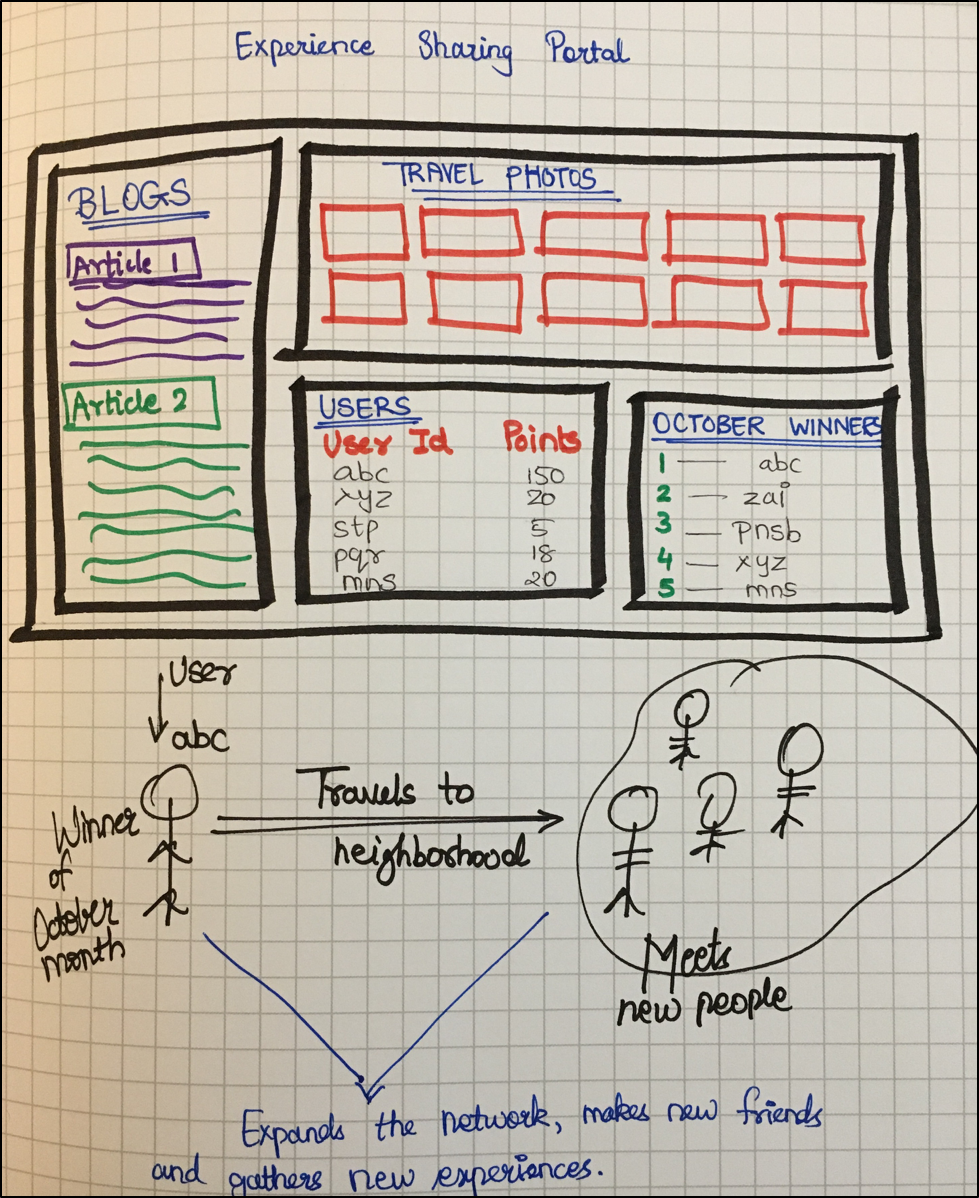 Experience Sharing Portal
BLOGS
Article 1
Article 2
TRAVEL PHOTOS
USERS
User Id Points
abc 150
xyz 20
stp 5
pqr 18
mns 20
OCTOBER WINNERS
1 — abc
2 — zai
3 — pnsb
4 — xyz
5 — mns
User
abc
Winner
of
October
month
Travels to
neighborhood
Meets
new people
Expands the network, makes new friends
and gathers new experiences.